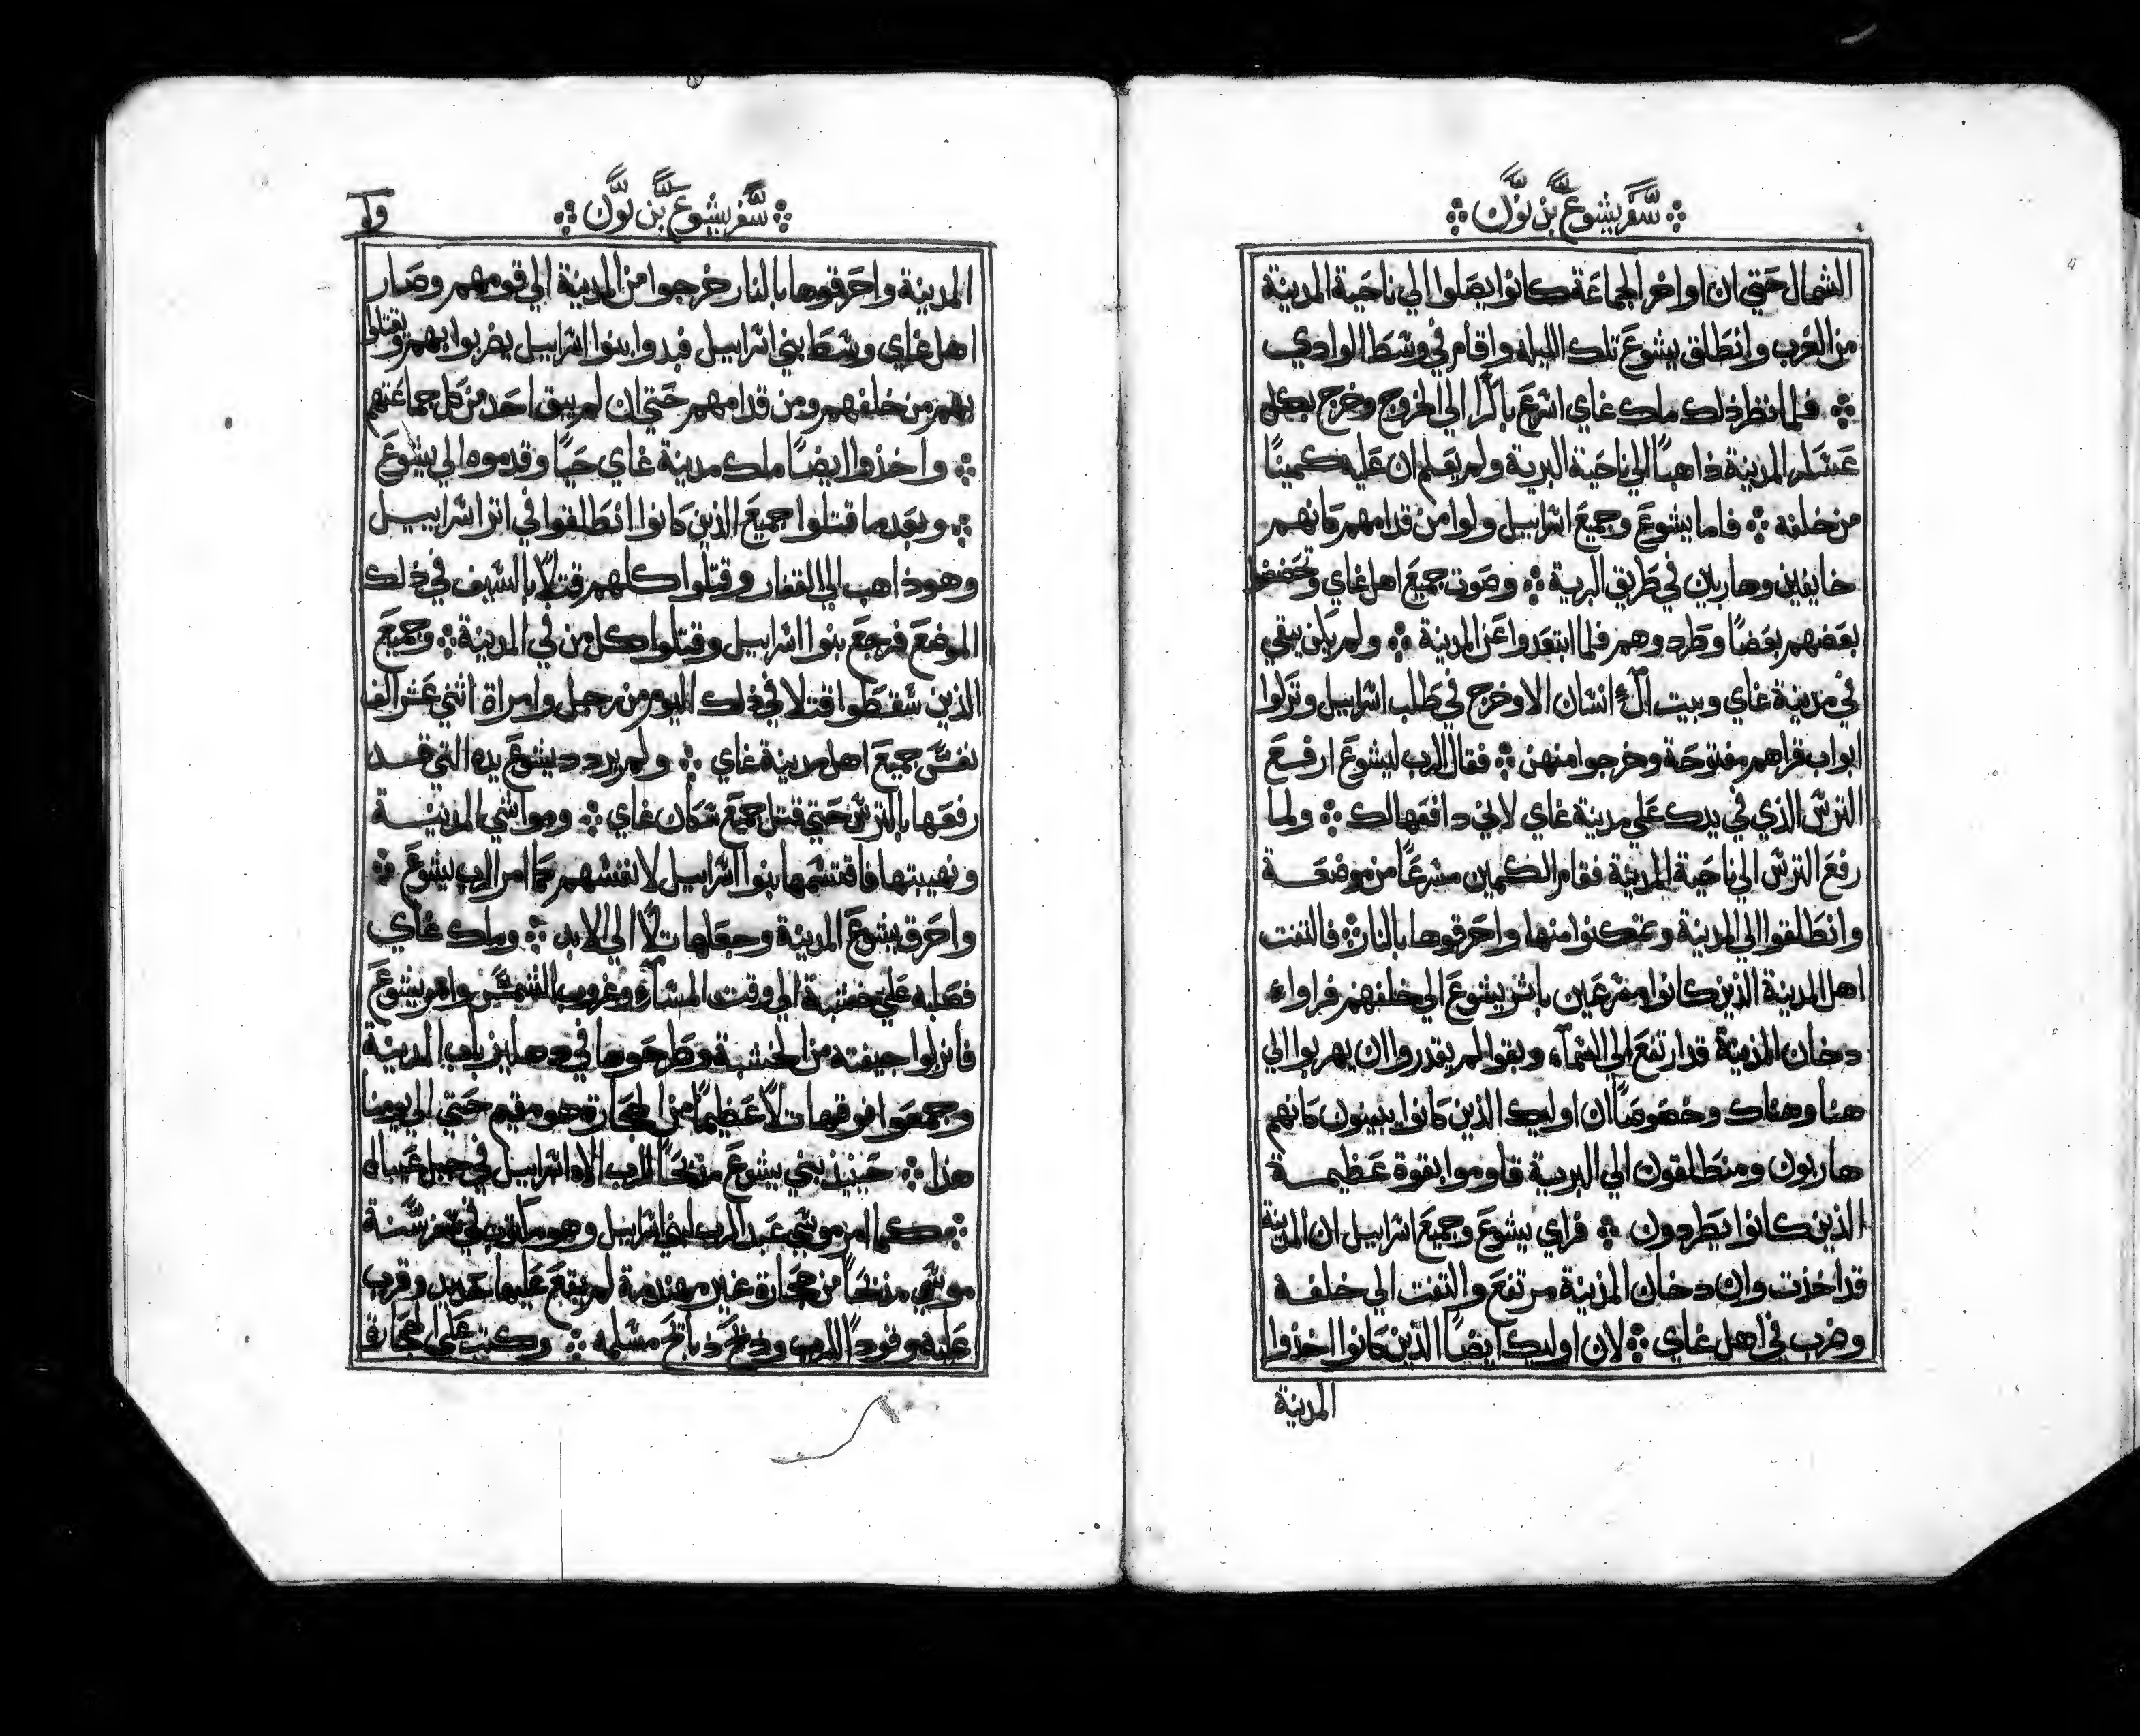 سفر يشوع بن نون
الشمال حتي ان اواخر الجماعة كانوا يصلوا الي ناحية المدينة
من الغرب وانطلق يشوع تلك الليله واقام في وسط الوادي
فلما نظر ذلك ملك غاي اسرع باكرا الي الخروج وخرج بكل
عسكر المدينة ذاهبا الي ناحية البرية ولم يعلم ان عليه كمينا
من خلفه فاما يشوع وجميع اسراييل ولوا من قدامهم كانهم
خايفين وهاربين في طريق البرية وصوت جميع اهل غاي وتحضضوا
بعضهم بعضا وطردوهم فلما ابتعدوا عن المدينة ولم يكن يبقي
في مدينة غاي وبيت ال انسان الا وخرج في طلب اسراييل وتركوا
ابواب قراهم مفتوحة وخرجوا منهن فقال الرب ليشوع ارفع
الترس الذي في يدك علي مدينة غاي لاني دافعها لك ولما
رفع الترس الي ناحية المدينة فقام الكمين مسرعا من موضعة
وانطلقوا الي المدينة وتمكنوا منها واحرقوها بالنار فالتفت
اهل المدينة الذين كانوا مسرعين باثر يشوع الي خلفهم فراواء
دخان المدينة قد ارتفع الي السماء وبقوا لم يقدروا ان يهربوا الي
هنا وهناك وخصوصا ان اوليك الذين كانوا يبينون كانهم
هاربون ومنطلقون الي البرية قاوموا بقوة عظيمة
الذين كانوا يطردون فراي يشوع وجميع اسراييل ان المدينة
قد اخذت وان دخان المدينة مرتفع والتفت الي خلفه
وضرب في اهل غاي لان اوليك ايضا الذين كانوا اخذوا
المدينة
سفر يشوع بن نون
المدينة واحرقوها بالنار خرجوا من المدينة الي قومهم وصار
اهل غاي وسط بني اسراييل فبدوا بنوا اسراييل يضربوا بهم وتقتلوا
بهم من خلفهم ومن قدامهم حتي ان لم يبق احد من كل جماعتهم
واخذوا ايضا ملك مدينة غاي حيا وقدموه الي يشوع
وبعدما قتلوا جميع الذين كانوا انطلقوا في اثر اسراييل
وهو ذاهب الي القفار وقتلوا كلهم قتلا بالسيف في ذلك
الموضع فرجع بنوا اسراييل وقتلوا كل من في المدينة وجميع
الذين سقطوا قتلا في ذلك اليوم من رجل وامراة اثني عشر الف
نفس جميع اهل مدينة غاي ولم يردد يشوع يده التي قد
رفعها بالترس حتي قتل جميع سكان غاي ومواشي المدينة
ونهيبتها فاقتسمها بنوا اسراييل لانفسهم كما امر الرب يشوع
واحرق يشوع المدينة وجعلها تلا الي الابد وملك غاي
فصلبه علي خشبة الي وقت المساء وغروب الشمس وامر يشوع
فانزلوا جيفته من الخشبة وطرحوها في دهليز باب المدينة
وجمعوا فوقها تلا عظيما من الحجارة وهو مقيم حتي الي يومنا
هذا حينيذ بني يشوع مذبحا للرب الاه اسراييل في جبل عيبال
كما امر موسي عبد الرب لبني اسراييل وهو مكتوب في سفر سنة
موسي مذبحا من حجارة غير مهندمة لم يقع عليها حديد وقرب
عليه وقودا للرب وذبح ذبايح مسلمه وكتب علي الحجارة